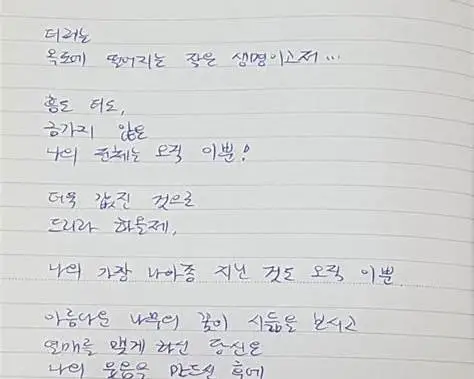 더러는
옥토에 떨어지는 작은 생명이고저...
흠도 티도,
금가지 않은
나의 전체는 오직 이뿐!
더욱 값진 것으로
드리라 하올제,
나의 가장 나아종 지닌 것도 오직 이뿐
아름다운 나무의 꽃이 시듦을 보시고
열매를 맺게 하신 당신은
나의 웃음을 만드신 후에